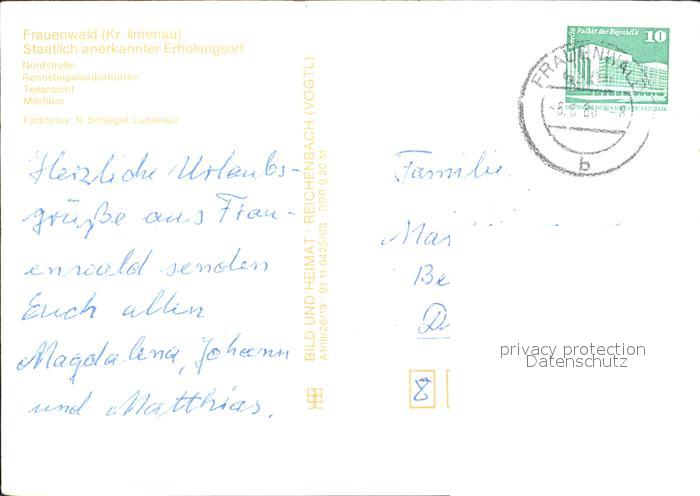 Frauenwald (Kr. Ilmenau)
Staatlich anerkannter Erholungsort
Nordstraße
Rennsteigwanderhütten
Teilansicht
Milchbar
Farbfotos: R. Schlegel, Lunzenau
Herzliche Urlaubs-
grüße aus Frau-
enwald senden
Euch allen
Magdalena, Johann
und Matthias.
BILD UND HEIMAT · REICHENBACH (VOGTL)
A1/III/26/13 · 01 11 0425/03 · DDR 0,20 M
Palast der Republik 10
FRAUENWALD
b
Familie
Mar
Be
D
8
privacy protection
Datenschutz